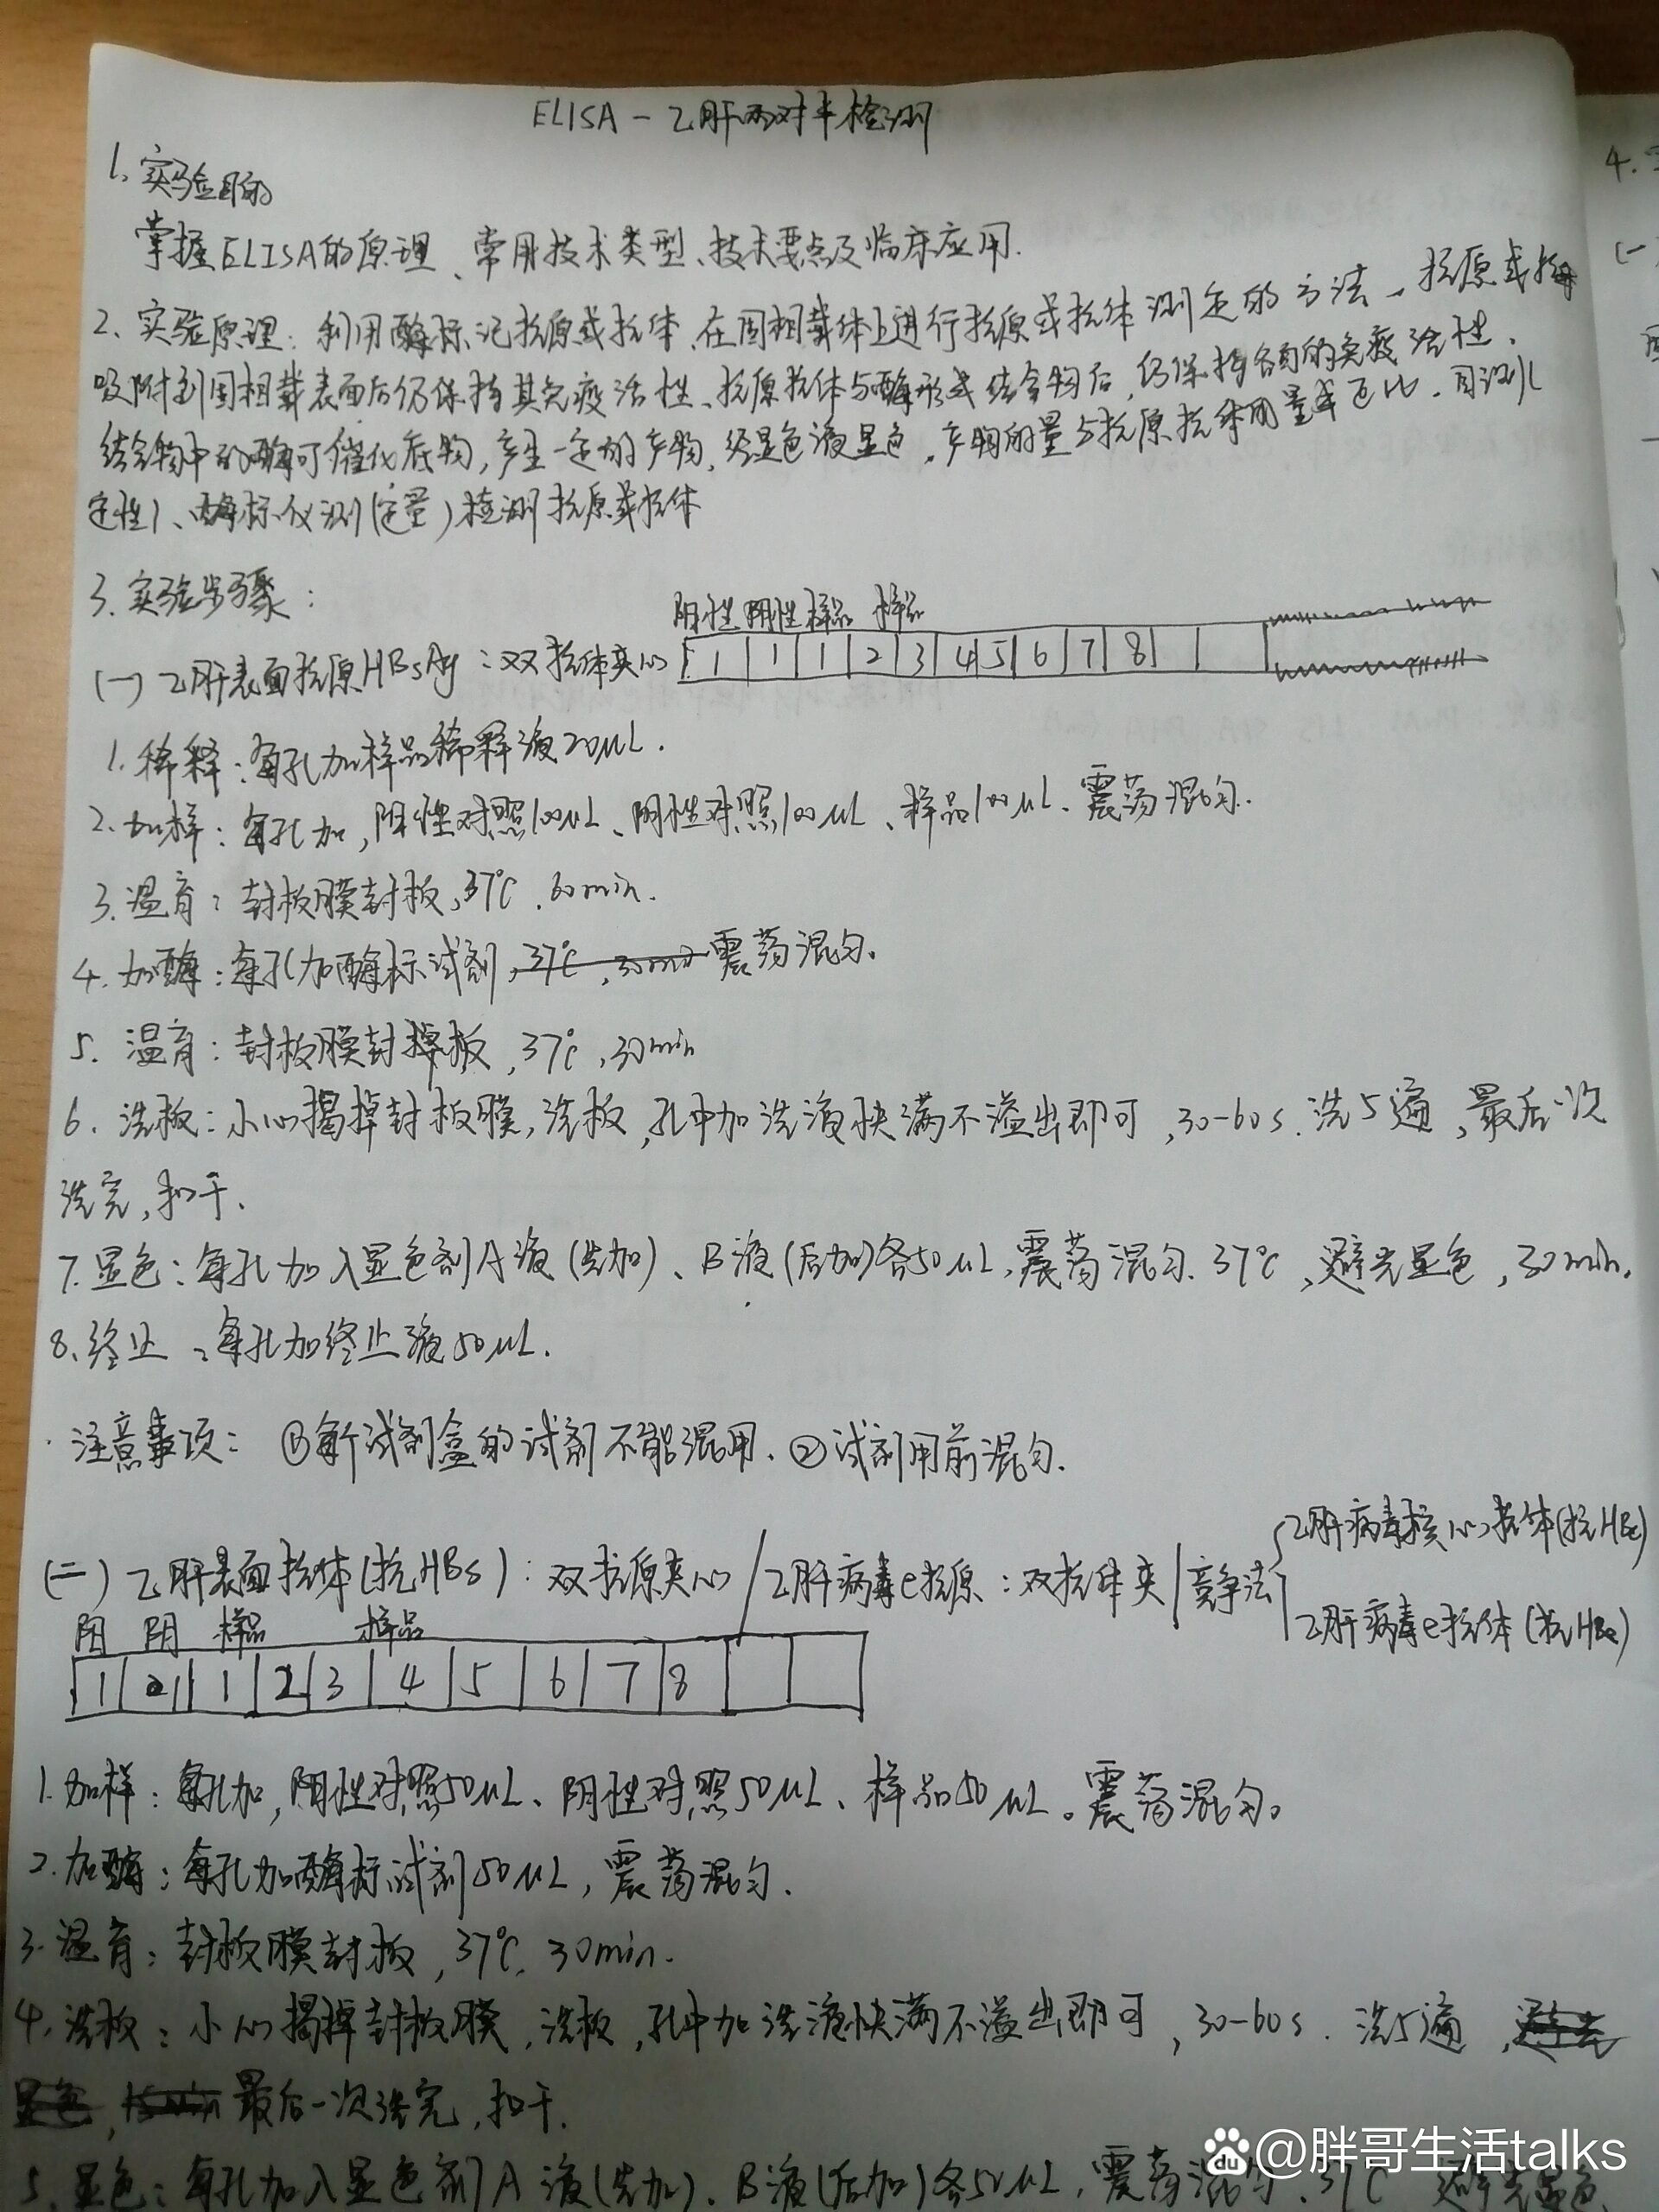 ELISA - 乙肝两对半检测
1、实验目的
掌握ELISA的原理、常用技术类型、技术要点及临床应用.
2、实验原理:利用酶标记抗原或抗体、在固相载体上进行抗原或抗体测定的方法、抗原或抗体
吸附到固相载表面后仍保持其免疫活性、抗原抗体与酶形成结合物后,仍保持各自的免疫活性、
结合物中的酶可催化底物,产生一定的产物,经显色液显色,产物的量与抗原抗体的量成正比.目测(
定性)、酶标仪测(定量)检测抗原或抗体
3.实验步骤:
阴性 阳性 样品 样品
(一)乙肝表面抗原HBsAg:双抗体夹心 1 1 1 2 3 4 5 6 7 8
1.稀释:每孔加样品稀释液20μL.
2.加样:每孔加,阳性对照100μL、阴性对照100μL、样品100μL、震荡混匀.
3.温育:封板膜封板,37℃.60min.
4.加酶:每孔加酶标试剂,37℃,30min震荡混匀.
5.温育:封板膜封板,37℃,30min
6.洗板:小心揭掉封板膜,洗板,孔中加洗液快满不溢出即可,30-60s.洗5遍,最后一次
洗完,扣干.
7.显色:每孔加入显色剂A液(先加)、B液(后加)各50μL,震荡混匀.37℃,避光显色,30min.
8.终止:每孔加终止液50μL.
注意事项:①每个试剂盒的试剂不能混用.②试剂用前混匀.
乙肝病毒核心抗体(抗HBc)
(二)乙肝表面抗体(抗HBs):双抗原夹心/乙肝病毒e抗原:双抗体夹|竞争法
乙肝病毒e抗体(抗HBe)
阳 阴 样品 样品
1 2 1 2 3 4 5 6 7 8
1.加样:每孔加,阳性对照50μL、阴性对照50μL、样品50μL。震荡混匀。
2.加酶:每孔加酶标试剂50μL,震荡混匀.
3.温育:封板膜封板,37℃,30min.
4.洗板:小心揭掉封板膜,洗板,孔中加洗液快满不溢出即可,30-60s.洗5遍,避光
显色,最后一次洗完,扣干.
5.显色:每孔加入显色剂A液(先加)、B液(后加)各50μL,震荡混匀.37℃ 避光显色
4.
(一)
du @胖哥生活talks